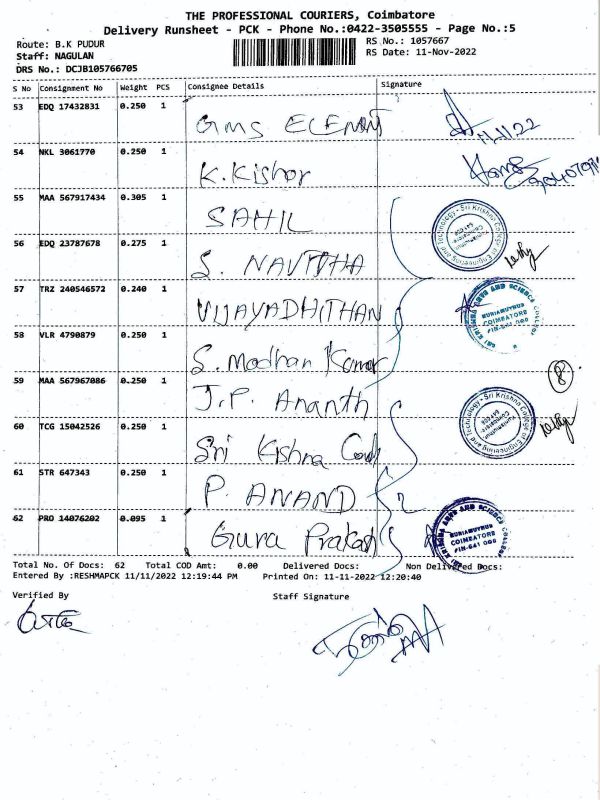 THE PROFESSIONAL COURIERS, Coimbatore
Delivery Runsheet - PCK - Phone No.:0422-3505555 - Page No.:5
Route: B.K PUDUR
RS No.: 1057667
Staff: NAGULAN
RS Date: 11-Nov-2022
DRS No.: DCJB105766705
S No Consignment No Weight PCS Consignee Details Signature
53 EDQ 17432831 0.250 1 GMS ELEMENT 11/11/22
54 NKL 3061770 0.250 1 K.Kishor
55 MAA 567917434 0.305 1 SAHIL
56 EDQ 23787678 0.275 1 S. NAVITHA
57 TRZ 240546572 0.240 1 VIJAYADHITHAN
58 VLR 4790879 0.250 1 S. Madhan Kumar
59 MAA 567967086 0.250 1 J.P. Ananth
8
60 TCG 15042526 0.250 1 Sri Kishna
61 STR 647343 0.250 1 P. ANAND 2
62 PRO 14076202 0.095 1 Guru Prakash
Sri Krishna College of Engineering and Technology
Kuniamuthur
Coimbatore
641 008
SRI KRISHNA ARTS AND SCIENCE COLLEGE
KUNIAMUTHUR
COIMBATORE
PIN-641 008
Sri Krishna College of Engineering and Technology
Kuniamuthur
Coimbatore
641 008
SRI KRISHNA ARTS AND SCIENCE COLLEGE
KUNIAMUTHUR
COIMBATORE
PIN-641 008
Total No. Of Docs: 62 Total COD Amt: 0.00 Delivered Docs: Non Delivered Docs:
Entered By :RESHMAPCK 11/11/2022 12:19:44 PM Printed On: 11-11-2022 12:20:40
Verified By Staff Signature